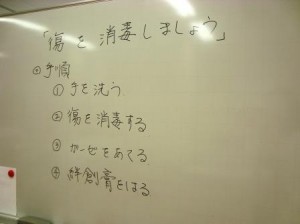 「傷を消毒しましょう」
⊙手順
① 手を洗う
② 傷を消毒する
③ ガーゼをあてる
④ 絆創膏をはる